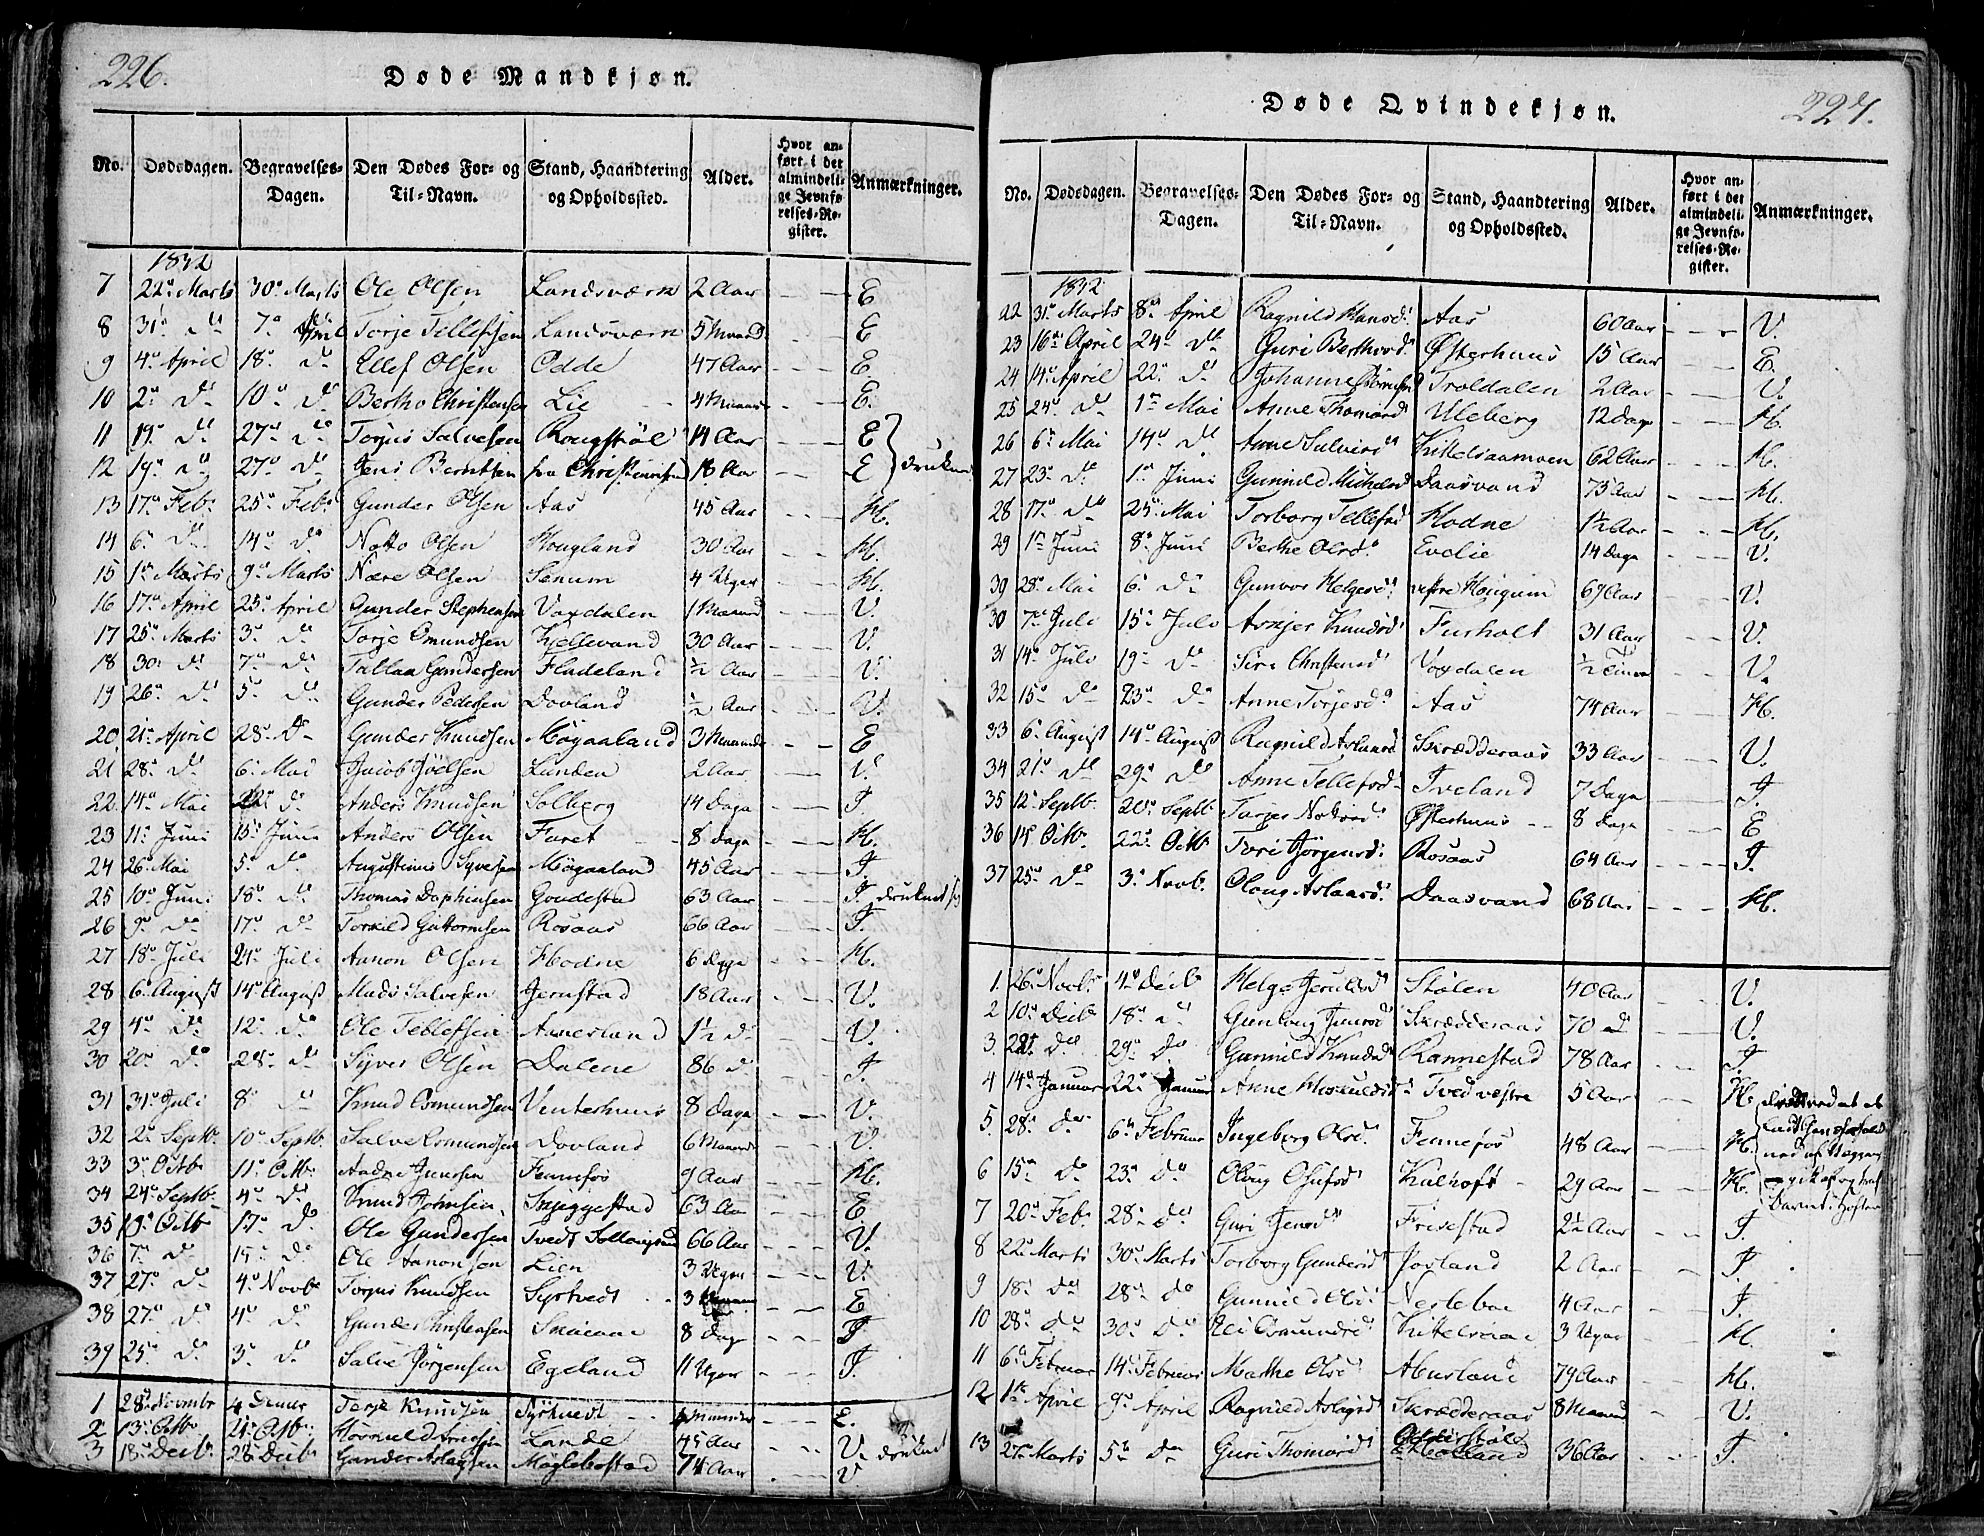 226.
Døde Mandkjøn.
No. Dødsdagen. Begravelses-Dagen. Den Dødes For- og Til-Navn. Stand, Haandtering og Opholdssted. Alder. Hvor anført i det almindelige Jevnførelses-Register. Anmærkninger.
1832
7 22de Marts 30e Marts Ole Olsen Landsværk 2 Aar - - E
8 31e Do 7e April Torje Tellefsen Landsværk 5 Maaned - - E
9 4e April 18e Do Ellef Olsen Odde 47 Aar - - E
10 2e Do 10e Do Bertho Christensen Lie 4 Maaned - - E.
11 19e Do 27e Do Torjus Salvesen Rougstøl 14 Aar - - E
12 19e Do 27e Do Jens Berntsen fra Christiansand 18 Aar - - E druknet
13 17e Feb. 25e Feb. Gunder Olsen Aas 45 Aar - - H.
14 6e Do 14e Do Notto Olsen Hougland 30 Aar - - H.
15 1e Marts 9e Marts Nære Olsen Senum 4 Uger - - H.
16 17e April 25e April Gunder Stephensen Voxdalen 1 Maaned - - V.
17 25e Marts 3e Do Torje Osmundsen Kjellevand 30 Aar - - V.
18 30e Do 7e Do Tallaa Gundersen Fladeland ½ Aar - - V.
19 26e Do 5e Do Gunder Pedersen Dovland ½ Aar - - V.
20 21e April 28e Do Gunder Knudsen Møgaaland 3 Maaneder - - E
21 28e Do 6e Mai Jacob Joelsen Lunden 2 Aar - - V.
22 14e Mai 22e Do Anders Knudsen Solberg 14 Dage - - I
23 11e Juni 15e Juni Anders Olsen Furet 8 Dage - - H.
24 26 Mai 5e Do Augustinus Syversen Møgaaland 45 Aar - - I.
25 10e Juni 18e Do Thomas Daphinsen Goudestad 63 Aar - - I. druknet
26 9e Do 17e Do Torkild Guttormsen Rosaas 66 Aar - - I.
27 18e Juli 24e Juli Aanon Olsen Hodne 6 Dage - - H.
28 6e August 14e August Mads Salvesen Jernstad 18 Aar - - V.
29 4e Do 12e Do Ole Tellefsen Aanesland 1½ Do - - V.
30 20e Do 28e Do Syver Olsen Dalene 86 Do - - I.
31 31e Juli 8e Do Knud Osmundsen Vinterhuus 8 Dage - - V.
32 2e Septb. 10e Septb Salve Osmundsen Dovland 6 Maaned - - V.
33 3e Octb 11e Octb. Aadne Junsen Fennefos 9 Aar - - H.
34 24e Septb. 4e Do Knud Johnsen Skjeggestad 63 Aar - - E
35 19e Octb 17e Do Ole Gundersen Tvedt 66 Aar - - V.
36 7e Do 15e Do Ole Aanonsen Lien 3 Uger - - V.
37 27e Do 4e Novb Torjus Knudsen Syrtvedt 3 - - E
38 27e Do 4e Do Gunder Christensen Skaiaae 8 Dage - - I
39 25e Do 3e Do Salve Jørgensen Egeland 11 Uger - - I.
1 28e Novembr 4 Decbr Terje Knudsen Syrtvedt Maaneder - - E.
2 13e Octb 21e Octb. Lande 45 Aar - - V. druknet
3 18e Decb. 26 Decb Gunder Aslaksen Moglebostad 74 Aar - - V
227.
Døde Qvindekjøn.
No. Dødsdagen. Begravelses-Dagen. Den Dødes For- og Til-Navn. Stand, Haandtering og Opholdssted. Alder. Hvor anført i det almindelige Jevnførelses-Register. Anmærkninger.
1832
22 31e Marts 8e April Ragnild Hansd. Aas 60 Aar - - V.
23 16e April 24e Do Guri Berthsd. Østerhuus 15 Aar - - E.
24 14e April 22e Do Johanne Troldalen 2 Aar - - V.
25 24e Do 1e Mai Anne Thomasd. Uleberg 12 Dage - - H.
26 6e Mai 14e Do Anne Salvesd. Kittelsaamoen 62 Aar - - H.
27 23e Do 1e Juni Gunnild Michelsd Daasvand 73 Aar - - H.
28 17e Do 25e Mai Torborg Tellefsd Hodne 1½ Aar - - H.
29 1e Juni 8e Juni Berthe Olsd. Evelie 14 Dage - - V.
39 28e Mai 6e Do Gunvor Helgesd. vestre Hougum 69 Aar - - V.
30 7e Juli 15e Juli Asnjer Knudsd. Furholt 31 Aar - - V.
31 14e Juli 19e Do Siri Christensd Voxdalen ½ Time - - V.
32 15e Do 23e Do Anne Torjesd. Aas 74 Aar - - H.
33 6e August 14e August Ragnild Aslaksd Skrædderaas 33 Aar - - V.
34 21e Do 29e Do Anne Tellefsd. Iveland 7 Dage - - I.
35 12e Septb. 20e Septb. Torjer Notvesd. Østerhuus 8 Dage - - E
36 14e Octb. 22e Octb Tori Jørgensd. Rosaas 64 Aar - - I
37 25e Do 3e Novb. Oloug Aslaksd. Daasvand 68 Aar - - H.
1. 26e Novb. 4e Decb Helge Jerulvsd Stølen 40 Aar - - V.
2 10e Decb 18e Do Gunborg Junsd Skrædderaas 70 Do - - V.
3. 22e Do 29e Do Gunnild Knudsd Rannestad 78 Aar - - I.
4 14e Januar 22e Januar Anne Tved vestre 5 Aar - - H.
5. 28e Do 6e Februar Ingeborg Olsd. Fennefos 48 Aar - - H.
6 15e Do 23e Do Oloug Olufsd Kalhoft 29 Aar - - H.
7 20e Feb. 28e Do Guri Jensd Frikstad 2½ Aar - - I.
8 22e Marts 30e Marts Torborg Gundersd Jorland 2 Aar - - I.
9 18e Do 28e Do Gunnild Olsd. Neslebae 4 Aar - - I.
10 28e Do 30e Do Eli Osmundsd Kitelsaae 3 Uger - - H.
11 6e Februar 14e Februar Marthe Olsd. Abusland 79 Aar - - H.
12 1e April 9e April Ragnild Aslagsd Skrædderaas 8 Maaned - - V.
13 27e Marts 5e Do Guri Thomasd. 36 Aar - - I.